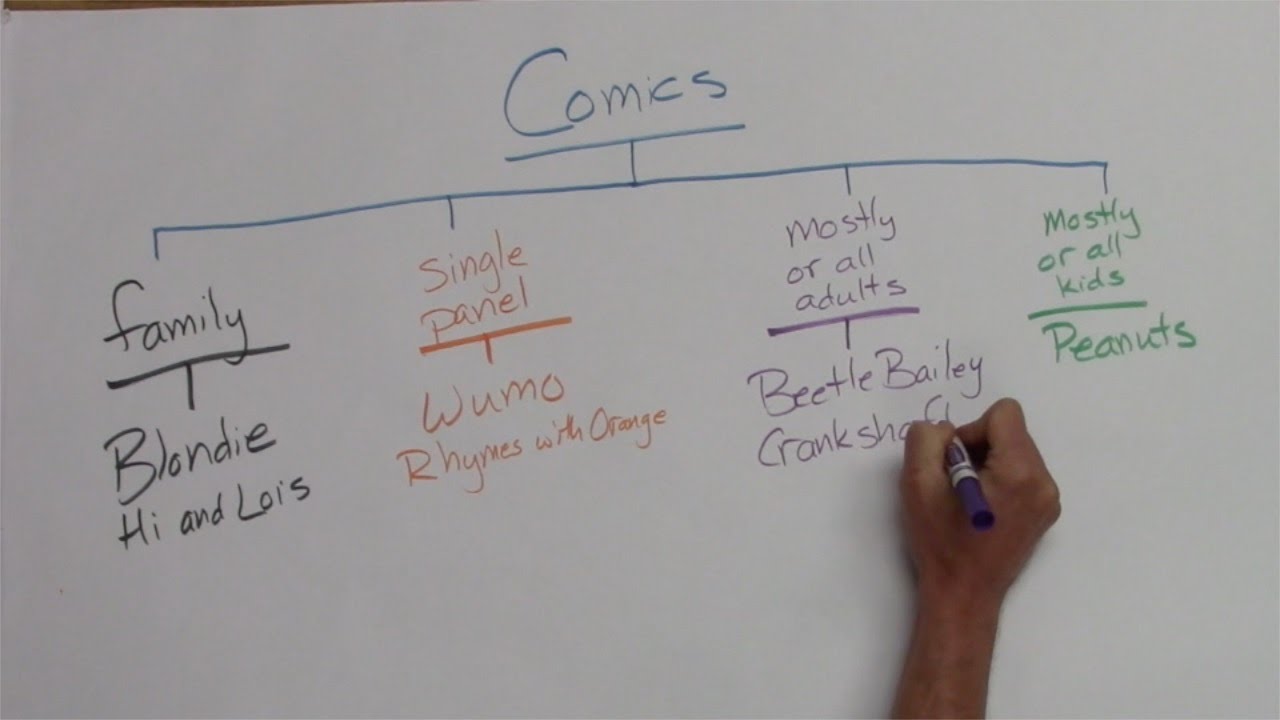 Comics
family
Blondie
Hi and Lois
Single
panel
Wumo
Rhymes with Orange
Mostly
or all
adults
Beetle Bailey
Mostly
or all
kids
Peanuts